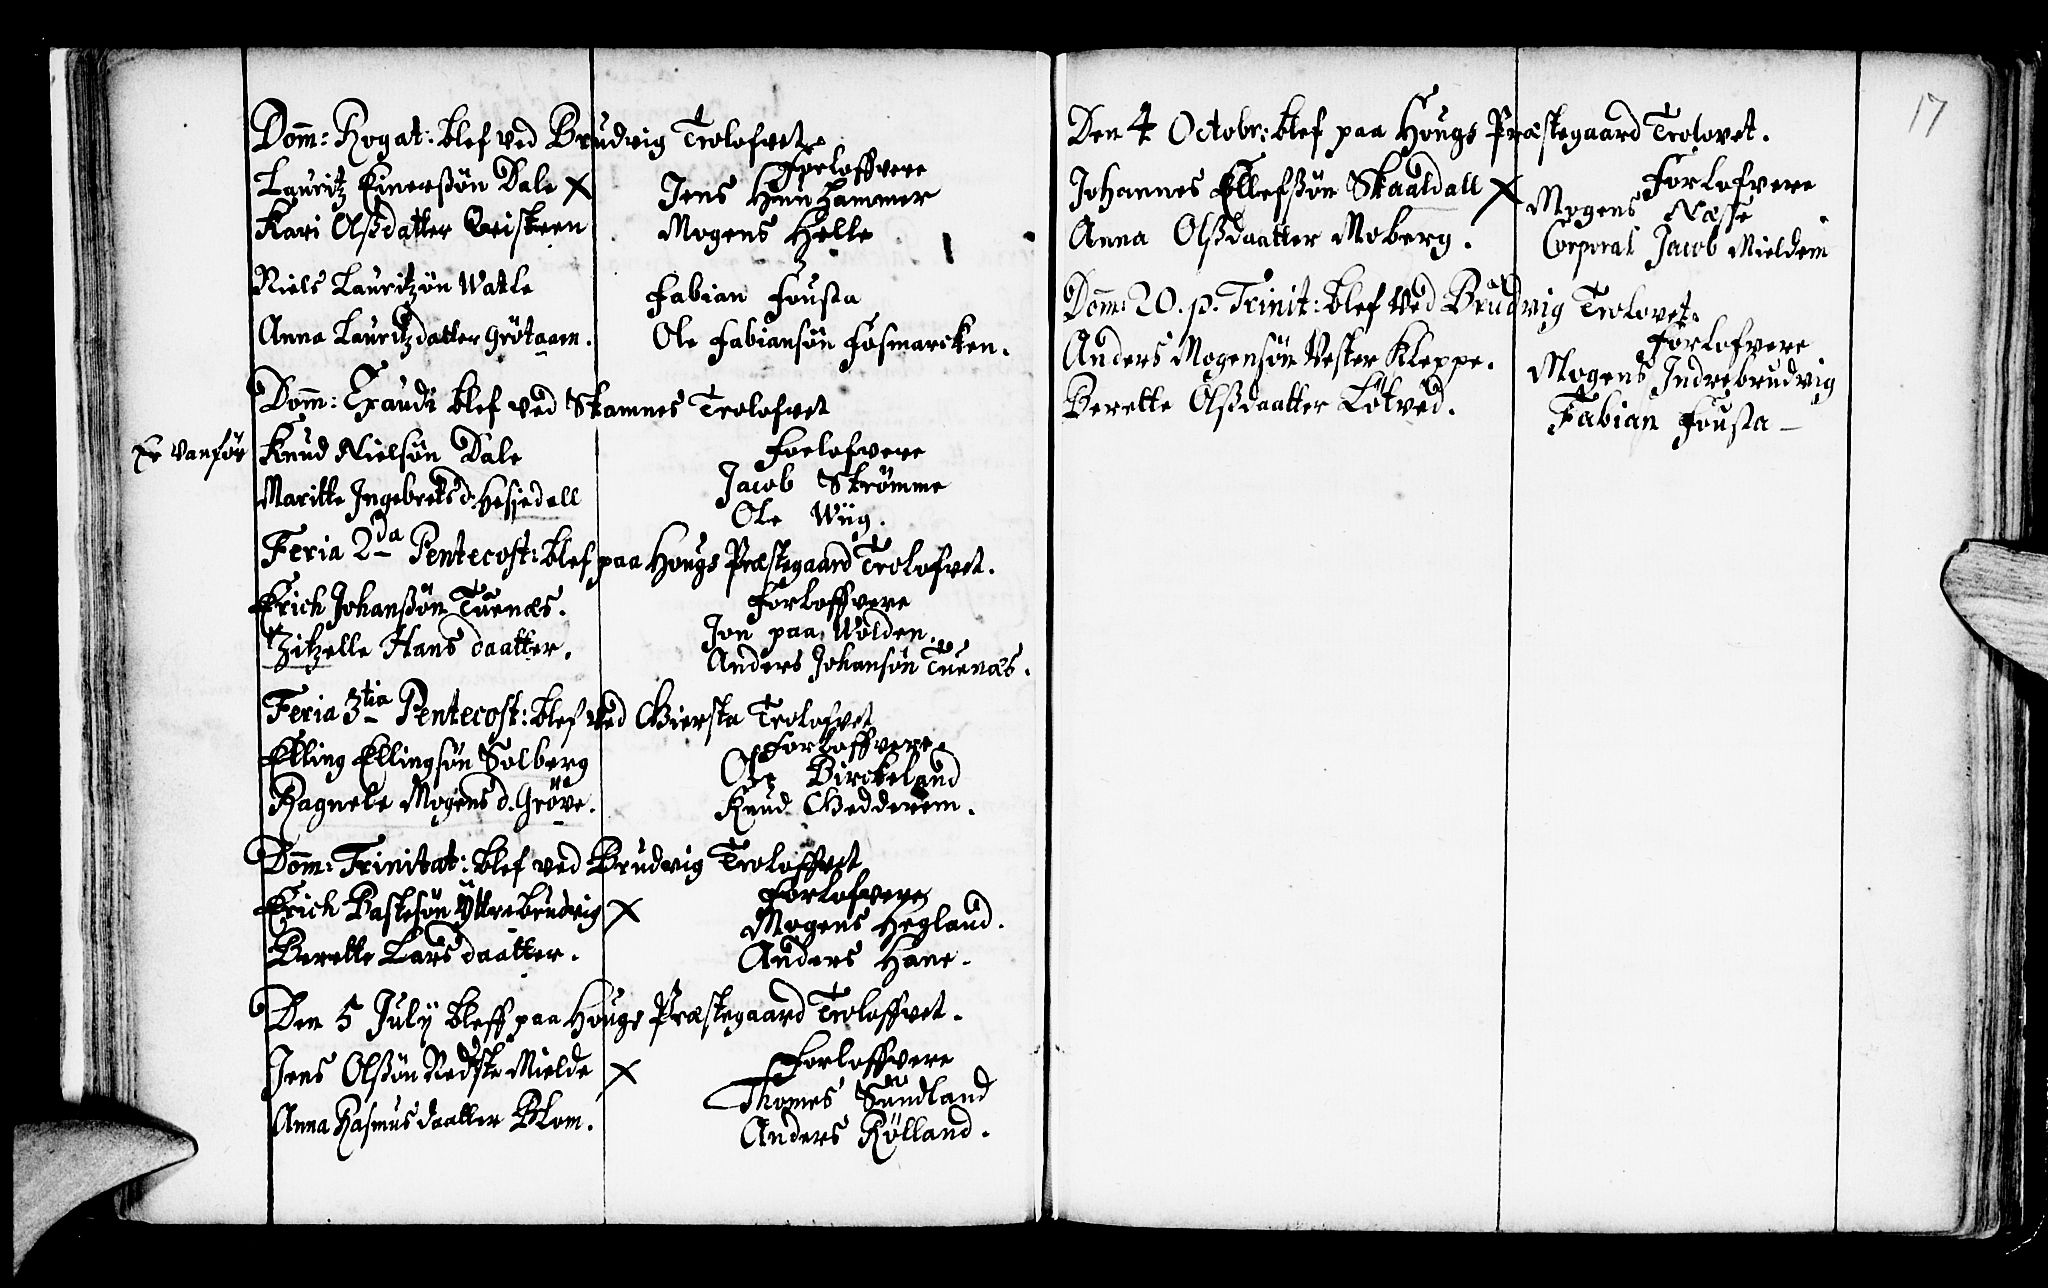 Dom̄: Rogat: blef ved Brudvig Trolofvet.
Lauritz Einersßön Dale X
Kari Olsßdatter Qvisteen
Forloffvere
Jens Hunhammer
Mogens Helle
Niels Lauritzön Watle
Anna Lauritzdatter Grötaaen.
Fabian Fousta
Ole Fabiansön Fosmarcken.
Dom̄: Exaudi blef ved Stamnes Trolofvet
Er vanför
Knud Nielsön Dale
Maritte Ingebretsd: Hesjedall
Forlofvere
Jacob Strömme
Ole Wiig.
Feria 2da Pentecost: blef paa Hougs Præstegaard Trolofvet.
Erich Johanßön Tuenæs.
Zitzelle Hans daatter.
Forloffvere
Jon paa Wolden.
Anders Johansön Tuenæs.
Feria 3tia Pentecost: blef ved Giersta Trolofvet
Elling Ellingsön Solberg
Ragnele Mogens d. Gröve.
Forloffvere.
Ole Birckeland
Knud Gedderem.
Dom̄: Trinitat: blef ved Brudvig Troloffvet
Erich Bastesön Yttrebrudvig X
Berette Lars daatter.
Forlofvere
Mogens Hegland.
Anders Hane.
Den 5 July bleff paa Hougs Præstegaard Troloffvet.
Jens Olßön Nedste Mielde X
Anna Rasmus daatter Blom.
Forloffvere
Thomes Sundland
Anders Rölland.
17
Den 4 Octobr: blef paa Hougs Præstegaard Trolovet.
Johannes Ellefsßön Skaaldall X
Anna Olßdaatter Moberg.
Forlofvere
Mogens Næse
Corporal Jacob Mieldem
Dom̄: 20. p. Trinit: blef ved Brudvig Trolovet.
Anders Mogensön Vester Kleppe.
Berette Olßdaatter Lötved.
Forlofvere
Mogens Indrebrudvig
Fabian Fousta